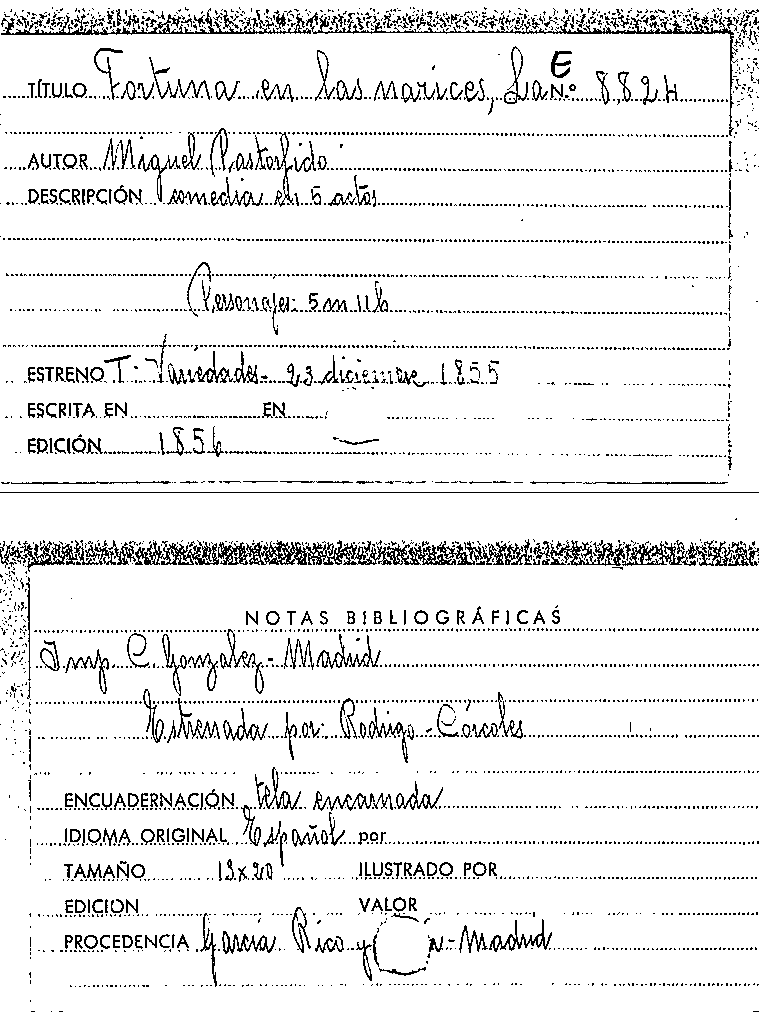 E
TÍTULO Fortuna en las narices, La N.º 8.824
AUTOR Miguel Pastorfido
DESCRIPCIÓN Comedia en 5 actos
Personajes: 5 m 11 h
ESTRENO T. Variedades - 23 diciembre 1855
ESCRITA EN EN
EDICIÓN 1856
NOTAS BIBLIOGRÁFICAS
Imp. C. Gonzalez - Madrid
Estrenada por: Rodrigo - Córcoles
ENCUADERNACIÓN tela encarnada
IDIOMA ORIGINAL Español por
TAMAÑO 13x20 ILUSTRADO POR
EDICION VALOR
PROCEDENCIA García Rico y - Madrid